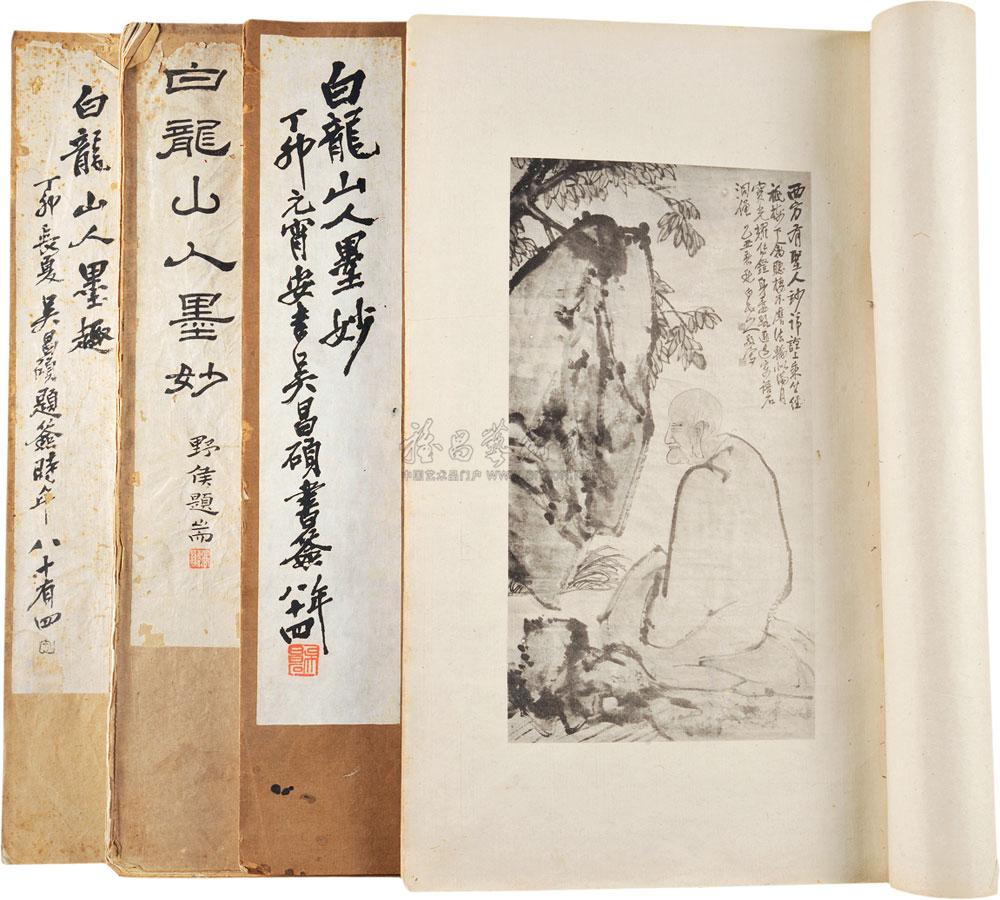 西方有聖人妙諦證上乘
白龍山人墨妙
丁卯元宵安吉吴昌碩書簽年八十四
白龍山人墨妙
野侯題耑
白龍山人墨趣
丁卯長夏吴昌碩題簽時年八十有四
中国艺术品门户